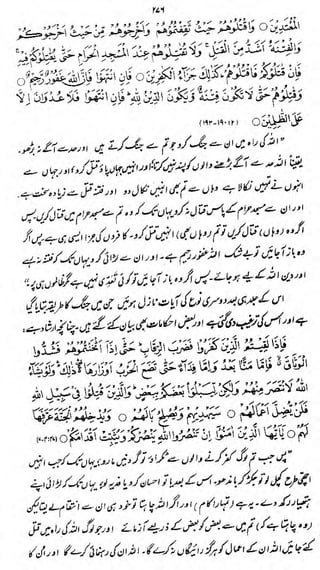 ۲۷۶
الْمُعْتَدِيْنَ ○ وَاقْتُلُوْهُمْ حَيْثُ ثَقِفْتُمُوْهُمْ وَاَخْرِجُوْهُمْ مِّنْ حَيْثُ اَخْرَجُوْكُمْ
وَالْفِتْنَةُ اَشَدُّ مِنَ الْقَتْلِ ۚ وَلَا تُقٰتِلُوْهُمْ عِنْدَ الْمَسْجِدِ الْحَرَامِ حَتّٰى يُقٰتِلُوْكُمْ فِيْهِ ۚ
فَاِنْ قٰتَلُوْكُمْ فَاقْتُلُوْهُمْ ؕ كَذٰلِكَ جَزَآءُ الْكٰفِرِيْنَ ○ فَاِنِ انْتَهَوْا فَاِنَّ اللّٰهَ غَفُوْرٌ رَّحِيْمٌ ○
وَقٰتِلُوْهُمْ حَتّٰى لَا تَكُوْنَ فِتْنَةٌ وَّيَكُوْنَ الدِّيْنُ لِلّٰهِ ؕ فَاِنِ انْتَهَوْا فَلَا عُدْوَانَ اِلَّا
عَلَى الظّٰلِمِيْنَ ○ (۲: ۱۹۰-۱۹۳)
”اللہ کی راہ میں ان سے جنگ کرو جو تم سے جنگ کرتے ہیں اور حد سے آگے نہ بڑھو۔
یقیناً اللہ حد سے آگے بڑھنے والوں کو پسند نہیں کرتا اور انہیں جہاں پاؤ قتل کرو اور جہاں سے
انہوں نے تمہیں نکالا ہے وہاں سے تم بھی انہیں نکال دو اور فتنہ قتل سے زیادہ سخت ہے۔
اور ان سے مسجد حرام کے پاس قتال نہ کرو یہاں تک کہ وہ تم سے مسجد حرام میں قتال کریں پس
اگر وہ (وہاں) قتال کریں تو تم (وہاں بھی) انہیں قتل کرو۔ کافروں کی جزا ایسی ہی ہے پس اگر
وہ باز آجائیں تو بے شک اللہ غفور رحیم ہے۔ اور ان سے لڑائی کرو یہاں تک کہ فتنہ نہ رہے
اور دین اللہ کے لیے ہو جائے۔ پس اگر وہ باز آجائیں تو کوئی تعدّی نہیں ہے مگر ظالموں ہی پر“
اس کے جلد ہی بعد دوسری نوع کی آیات نازل ہوئیں جن میں جنگ کا طریقہ بتایا گیا
ہے اور اس کی ترغیب دی گئی ہے اور بعض احکامات بھی بیان کئے گئے ہیں۔ چنانچہ ارشاد ہے:
فَاِذَا لَقِيْتُمُ الَّذِيْنَ كَفَرُوْا فَضَرْبَ الرِّقَابِ ؕ حَتّٰى اِذَا اَثْخَنْتُمُوْهُمْ فَشُدُّوا
الْوَثَاقَ ۙ فَاِمَّا مَنًّا بَعْدُ وَاِمَّا فِدَآءً حَتّٰى تَضَعَ الْحَرْبُ اَوْزَارَهَا ۛ ذٰلِكَ ۛ وَلَوْ يَشَآءُ
اللّٰهُ لَانْتَصَرَ مِنْهُمْ وَلٰكِنْ لِّيَبْلُوَا بَعْضَكُمْ بِبَعْضٍ ؕ وَالَّذِيْنَ قُتِلُوْا فِيْ سَبِيْلِ اللّٰهِ
فَلَنْ يُّضِلَّ اَعْمَالَهُمْ ○ سَيَهْدِيْهِمْ وَيُصْلِحُ بَالَهُمْ ○ وَيُدْخِلُهُمُ الْجَنَّةَ عَرَّفَهَا
لَهُمْ ○ يٰٓاَيُّهَا الَّذِيْنَ اٰمَنُوْٓا اِنْ تَنْصُرُوا اللّٰهَ يَنْصُرْكُمْ وَيُثَبِّتْ اَقْدَامَكُمْ ○ (۴۷: ۴-۷)
”پس جب تم لوگ کفر کرنے والوں سے ٹکراؤ تو گردنیں مارو، یہاں تک کہ جب انہیں
اچھی طرح کچل لو تو جکڑ کر باندھو۔ اس کے بعد یا تو احسان کرو یا فدیہ لو، یہاں تک کہ لڑائی اپنے
ہتھیار رکھ دے۔ یہ ہے (تمہارا کام) اور اگر اللہ چاہتا تو خود ہی ان سے انتقام لے لیتا لیکن
(وہ چاہتا ہے کہ) تم میں سے بعض کو بعض کے ذریعے آزمائے اور جو لوگ اللہ کی راہ میں قتل
کئے جائیں اللہ ان کے اعمال کو ہرگز رائیگاں نہ کرے گا۔ اللہ ان کی رہنمائی کرے گا اور ان کا